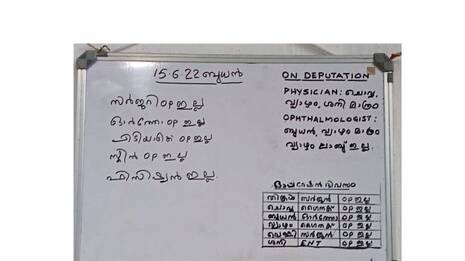 15.6.22 ബുധൻ
സർജറി OP ഇല്ല
ഓർത്തോ OP ഇല്ല
പിടിയാട്രിക് OP ഇല്ല
സ്കിൻ OP ഇല്ല
ഫിസിഷ്യൻ ഇല്ല
ON DEPUTATION
PHYSICIAN: ചൊവ്വ,
വ്യാഴം, ശനി മാത്രം
OPHTHALMOLOGIST:
ബുധൻ, വ്യാഴം മാത്രം
വ്യാഴം ലാബ് ഇല്ല.
ഓപ്പറേഷൻ ദിവസം
തിങ്കൾ സർജൻ OP ഇല്ല
ചൊവ്വ ഗൈനക് OP ഇല്ല
ബുധൻ ഓർത്തോ OP ഇല്ല
വ്യാഴം ഗൈനക് OP ഇല്ല
വെള്ളി സർജൻ OP ഇല്ല
ശനി ENT OP ഇല്ല